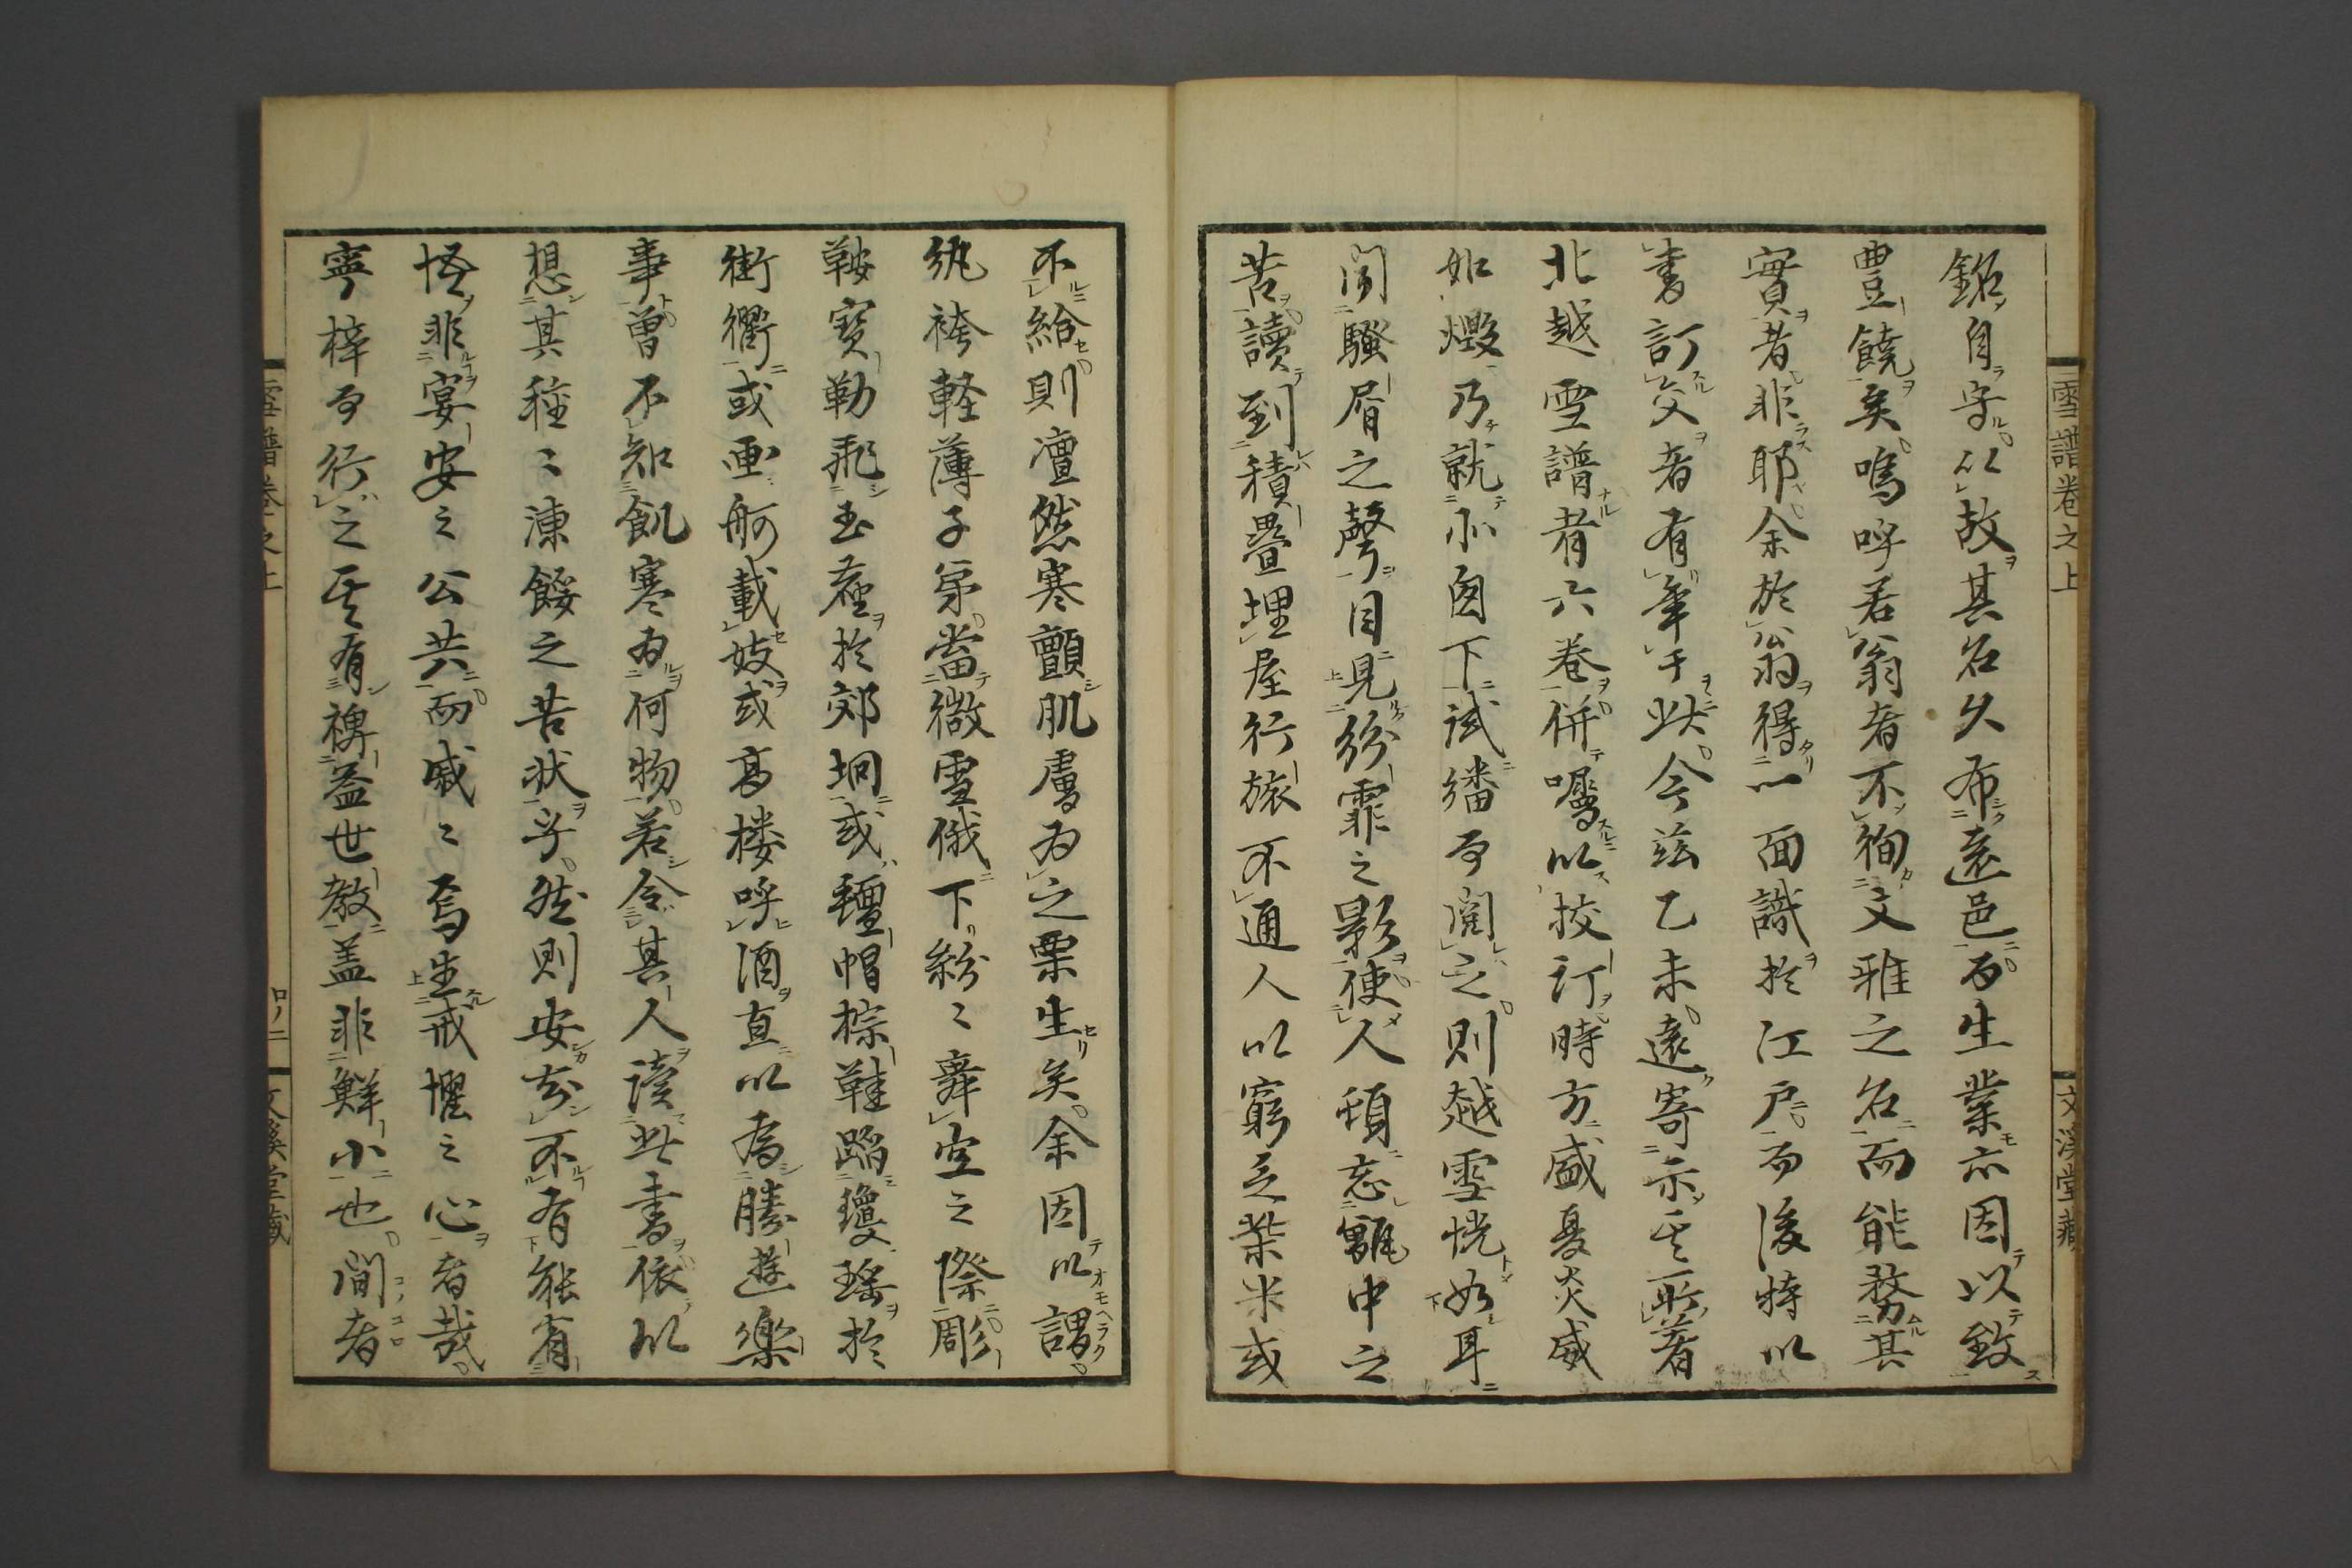 銘自守以故其名久布遠邑而生業亦因以致
豊饒矣嗚呼若翁者不徇文雅之名而能務其
實者非耶余於翁得一面識於江戸而後特以
書訂交者有年于此今茲乙未遠寄示其所著
北越雪譜者六巻併囑以挍訂時方盛夏炎威
如燬乃就小囱下試繙而閲之則越雪恍如耳
聞騒屑之聲目見紛霏之影使人頓忘甑中之
苦讀到積疊埋屋行旅不通人以窮乏柴米或
不給則凛然寒顫肌膚為之栗生矣余因以謂
紈袴軽薄子弟當微雪俄下紛〻舞空之際彫
鞍寳勒飛玉塵於郊坰或氈帽棕鞋蹈瓊瑶於
街衢或画舸載妓或髙楼呼酒直以為勝遊樂
事曽不知飢寒為何物若令其人讀此書依以
想其種〻凍餒之苦状乎然則安知不有能省
悟非宴安之公共而戚〻焉生戒懼之心者哉
寧梓而行之其有裨益世教蓋非鮮小也間者
雪譜巻之上
文溪堂藏
雪譜巻之上
口ノ二
文溪堂藏